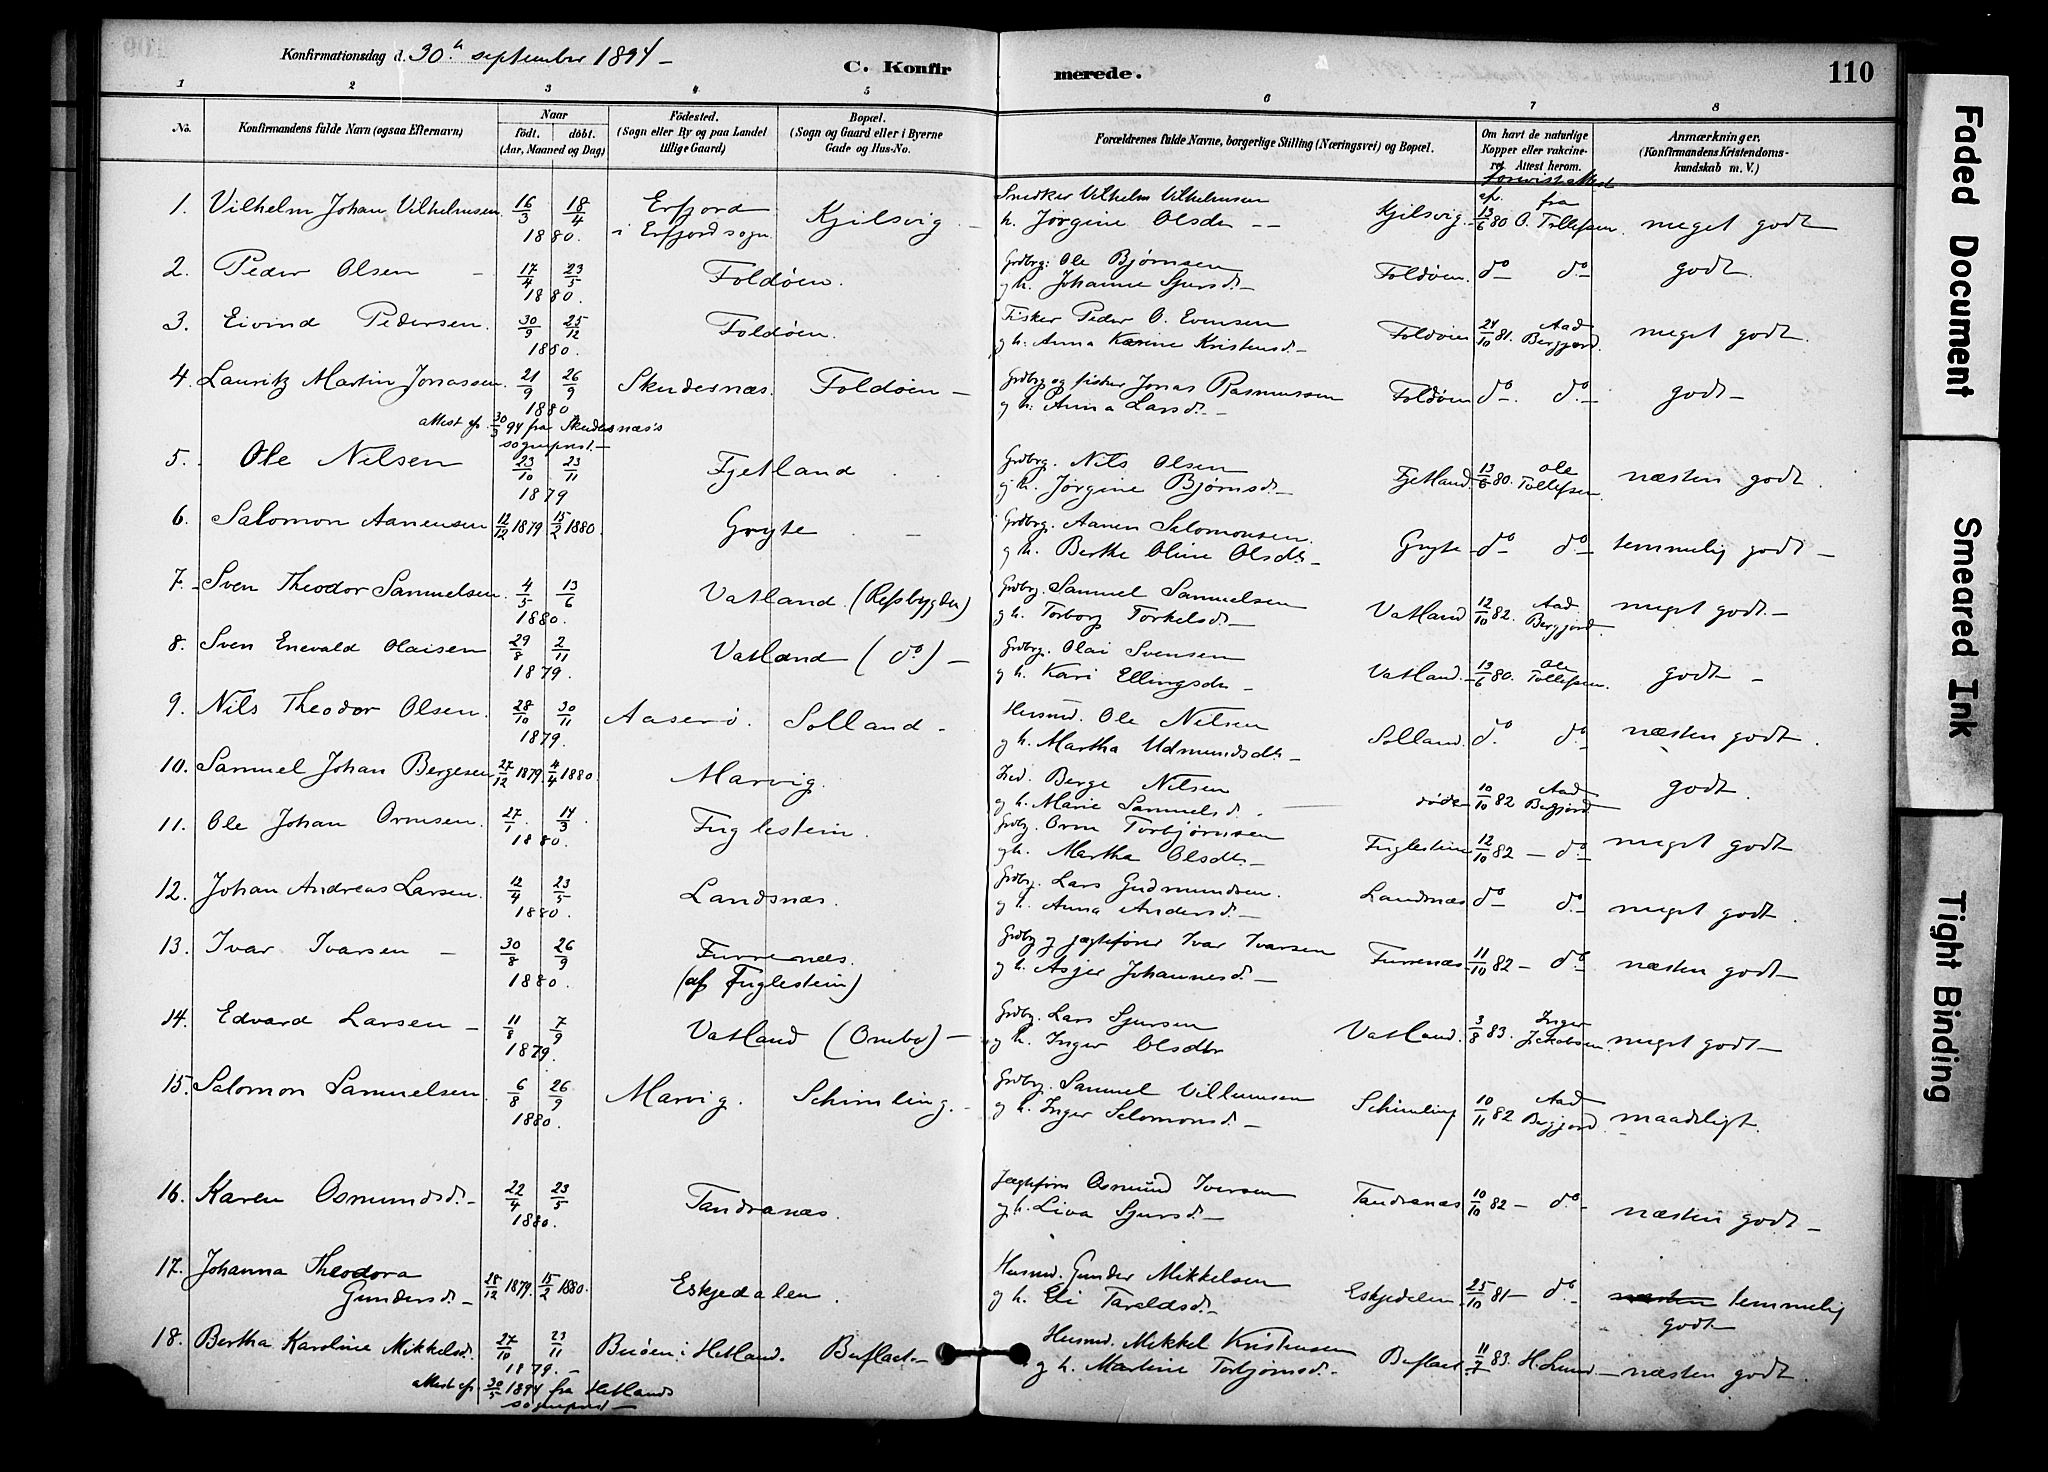 Konfirmationsdag d. 30te september 1894 –
C. Konfirmerede.
110
1 2 3 4 5 6 7 8
No.
Konfirmandens fulde Navn (ogsaa Efternavn)
Naar
födt. döbt.
(Aar, Maaned og Dag)
Födested.
(Sogn eller By og paa Landet
tillige Gaard)
Bopæl.
(Sogn og Gaard eller i Byerne
Gade og Hus-No.
Forældrenes fulde Navne, borgerlige Stilling (Næringsvei) og Bopæl.
Om havt de naturlige
Kopper eller vakcine-
ret Attest herom.
Anmærkninger.
(Konfirmandens Kristendoms-
kundskab m. V.)
1. Vilhelm Johan Vilhelmsen 16/3 18/4 1880. Erfjord i Erfjord sogn Kjilsvig –
Snedker Vilhelm Vilhelmsen
h. Jørgine Olsdr -- Kjilsvig 13/6 80 O. Tollefsen. meget godt
2. Peder Olsen – 17/4 23/5 1880. Foldöen.
Grdbrg: Ole Bjørnsen
og h. Johanne Sjursd. – Foldöen. do do – godt.
3. Eivind Pedersen. 30/9 25/12 1880. Foldöen.
Fisker Peder O. Evensen
og h. Anna Karine Kristensd. – Foldöen 24/10 81. Aad Bergjord. meget godt.
4. Lauritz Martin Jonassen. 21/9 26/9 1880 Skudesnæs. Foldöen –
attest af 30/3 94 fra Skudesnæs's
sogneprest –
Grdbrg og fisker Jonas Rasmussen
og h. Anna Larsd. – Foldöen do –. do. – godt –
5. Ole Nilsen 23/10 23/11 1879 Fjetland
Grdbrg. Nils Olsen
og h. Jørgine Bjørnsd. – Fjetland 13/6 80. Ole Tollefsen. næsten godt.
6. Salomon Aanensen 12/12 1879 15/2 1880. Gryte –
Grdbrg. Aanen Salomonsen.
og h. Berthe Oline Olsdr. – Gryte – do do – temmelig godt –
7. Sven Theodor Samuelsen. 4/5 13/6 1880. Vatland (Refsbygden)
Grdbrg. Samuel Samuelsen
og h. Torborg Torkelsd. – Vatland 12/10 82. Aad. Bergjord. meget godt. –
8. Sven Enevald Olaisen 29/8 2/11 1879. Vatland (do) –
Grdbrg. Olai Svensen
og h. Kari Ellingsdr – Vatland. 13/6 80. Ole Tollefsen. godt –
9. Nils Theodor Olsen. 28/10 30/11 1879. Aaserö. Solland –
Husmd. Ole Nilsen
og h. Martha Udmundsdr. – Solland. do. do. – næsten godt.
10. Samuel Johan Bergesen 27/12 1879. 4/4 1880. Marvig.
Berge Nilsen
og h. Marie Samuelsd. døde 10/10 82 Aad Bergjord godt.
11. Ole Johan Ormsen. 27/1. 14/3. 1880. Fuglestein.
Grdbrg. Orm Torbjørnsen
og h. Martha Olsdr. – Fuglestein 12/10 82 – do – meget godt
12. Johan Andreas Larsen. 12/4 23/5 1880. Landsnæs.
Grdbrg. Lars Gudmundsen.
og h. Anna Andersd. – Landsnæs do do. – meget godt.
13. Ivar Ivarsen – 30/8 26/9 1880. Furrenæs.
(af Fuglestein)
Grdbrg og jægtefører Ivar Ivarsen
og h. Asjer Johannesd. – Furrenæs 11/10 82 – do – næsten godt
14. Edvard Larsen – 11/8 7/9 1879. Vatland (Ombo) –
Grdbrg. Lars Sjursen
og h. Inger Olsdtr Vatland. 3/8 83. Inger Jakobsen. meget godt –
15. Salomon Samuelsen. 6/8 26/9 1880. Marvig. Schimling. –
Grdbrg. Samuel Villumsen
og h. Inger Salomonsd. – Schimling 10/11 82 Aad Bergjord. maadeligt.
16. Karen Osmundsd. – 22/4 23/5 1880. Tandranæs.
Jægtefører Osmund Iversen
og h. Liva Sjursd. – Tandranæs 10/10 82 – do. – næsten godt –
17. Johanna Theodora
Gundersd. – 28/12 1879. 15/2 1880. Eskjedalen.
Husmd. Gunder Mikkelsen
og h. Eli Taraldsd. – Eskjedalen 25/10 81 – do. – næsten temmelig
godt
18. Bertha Karoline Mikkelsd. 27/10 23/11 1879. – Buöen i Hetland. Buflaet –
attest af 30/5 1894 fra Hetlands
sogneprest –
Husmd. Mikkel Kristensen
og h. Martine Torbjørnsd. Buflaet 11/7 83. H. Lund. – næsten godt.
Faded Document
Smeared Ink
Tight Binding